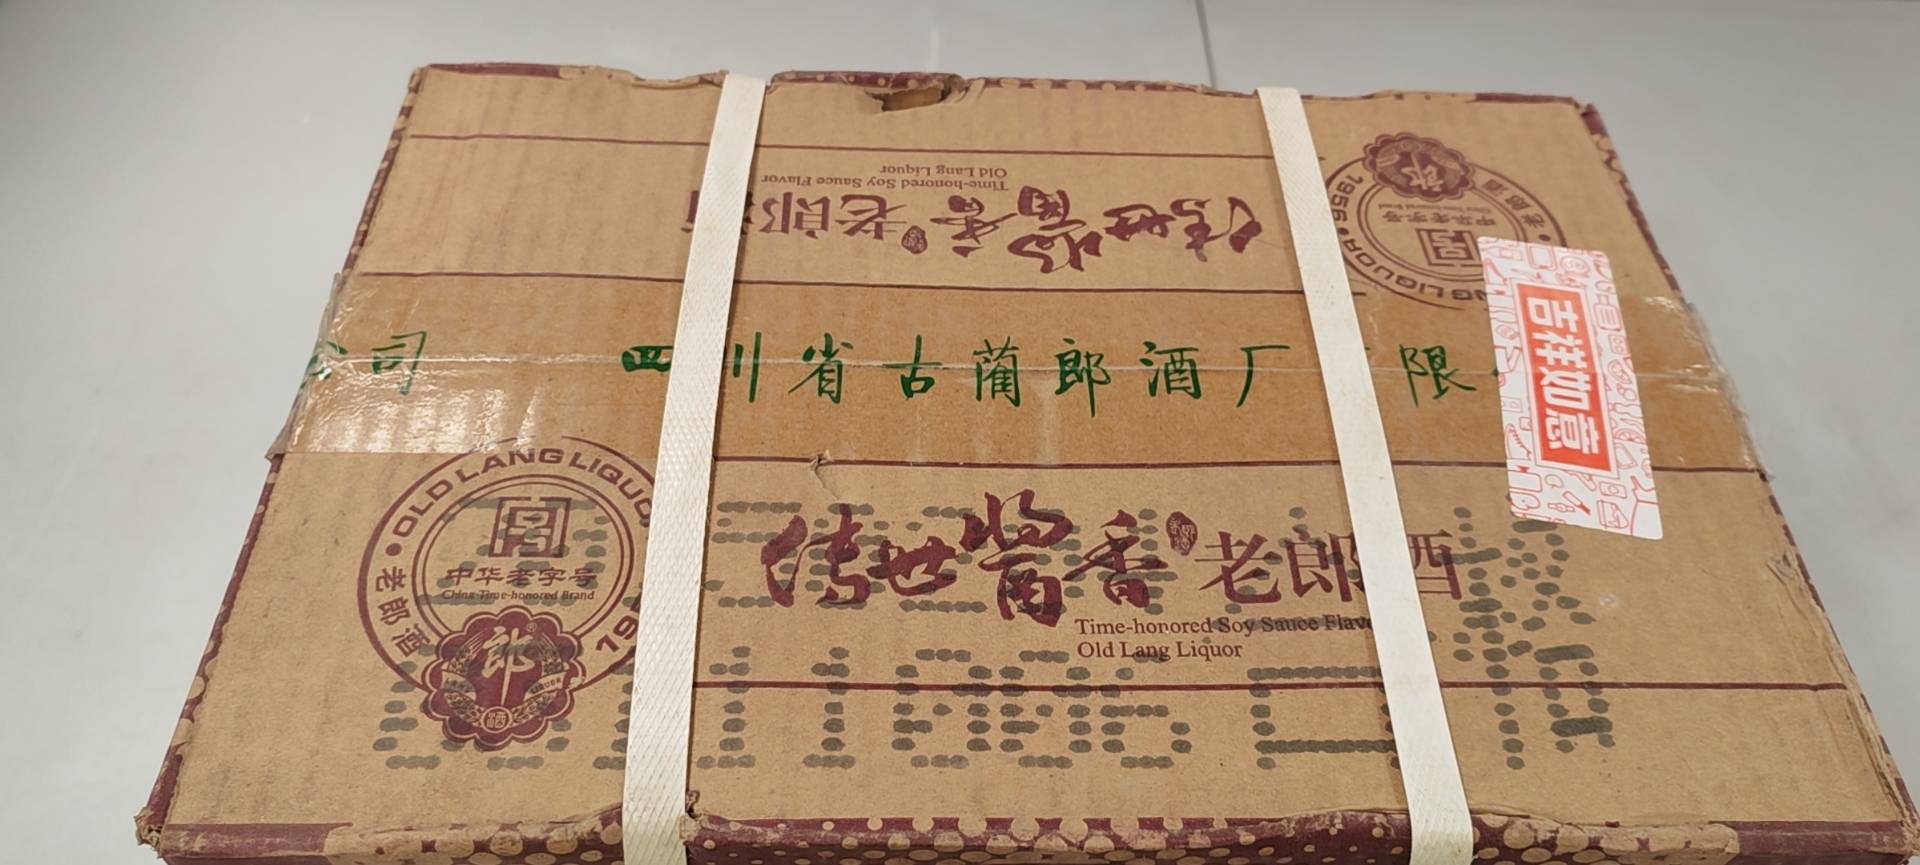 Old Lang Liquor
Time-honored Soy Sauce Flavor
传世酱香老郎酒
1956
老郎酒
中华老字号
公司 四川省古蔺郎酒厂 限
吉祥如意
OLD LANG LIQUO
老郎酒
中华老字号
China Time-honored Brand
郎
传世酱香老郎酒
Time-honored Soy Sauce Flavo
Old Lang Liquor